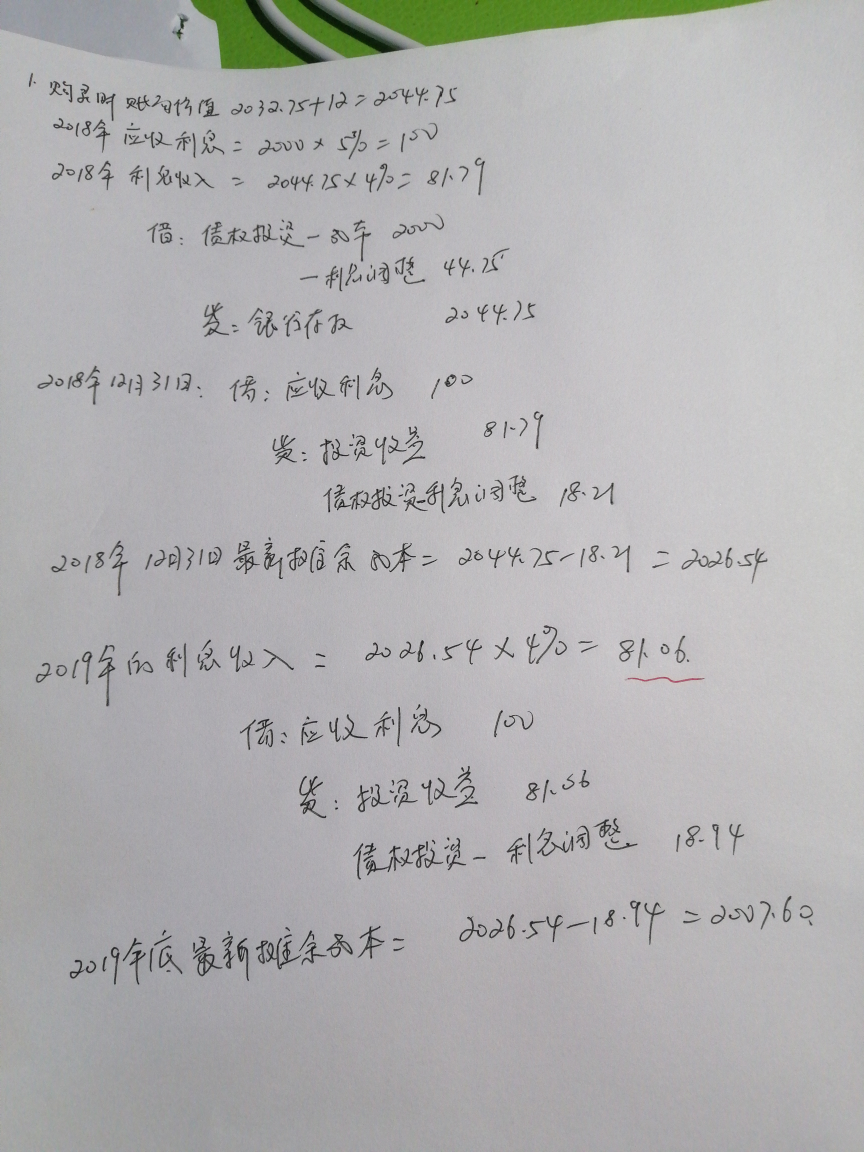 1. 购买时账面价值 2032.75+12=2044.75
2018年应收利息=2000×5%=100
2018年利息收入=2044.75×4%=81.79
借：债权投资—成本 2000
—利息调整 44.75
贷：银行存款 2044.75
2018年12月31日：借：应收利息 100
贷：投资收益 81.79
债权投资—利息调整 18.21
2018年12月31日最新摊余成本=2044.75-18.21=2026.54
2019年的利息收入=2026.54×4%=81.06.
借：应收利息 100
贷：投资收益 81.06
债权投资—利息调整 18.94
2019年底最新摊余成本=2026.54-18.94=2007.60.